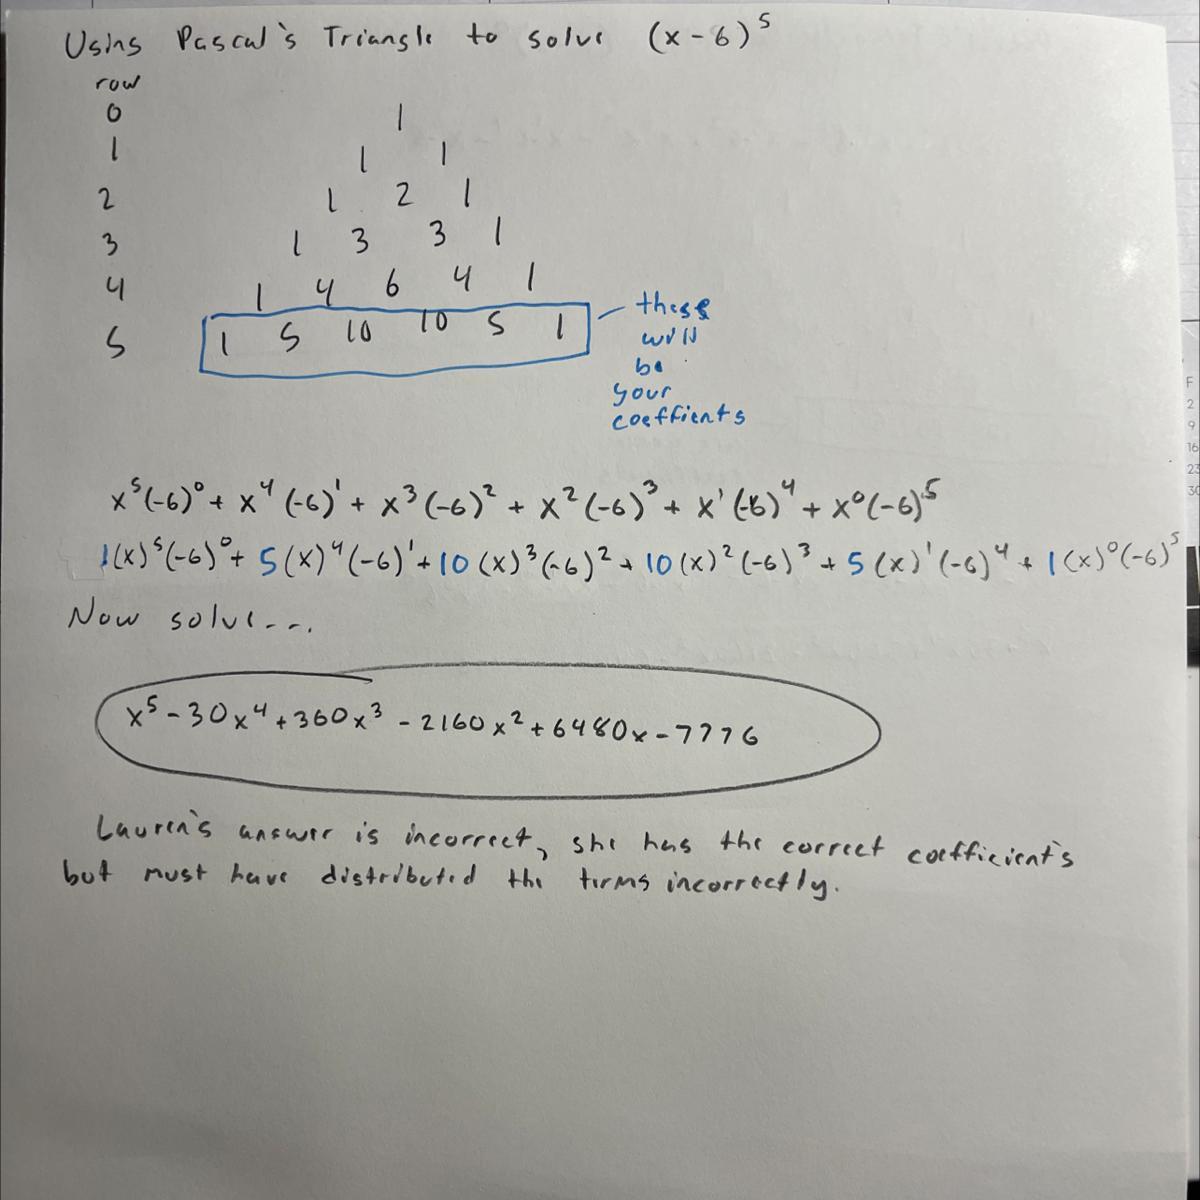 Using Pascal's Triangle to solve (x-6)⁵
row
0 1
1 1 1
2 1 2 1
3 1 3 3 1
4 1 4 6 4 1
5 1 5 10 10 5 1
these
will
be
your
coeffients
x⁵(-6)⁰ + x⁴(-6)¹ + x³(-6)² + x²(-6)³ + x¹(-6)⁴ + x⁰(-6)⁵
1(x)⁵(-6)⁰ + 5(x)⁴(-6)¹ + 10(x)³(-6)² + 10(x)²(-6)³ + 5(x)¹(-6)⁴ + 1(x)⁰(-6)⁵
Now solve...
x⁵ - 30x⁴ + 360x³ - 2160x² + 6480x - 7776
Lauren's answer is incorrect, she has the correct coefficient's
but must have distributed the terms incorrectly.
F
2
9
16
23
30